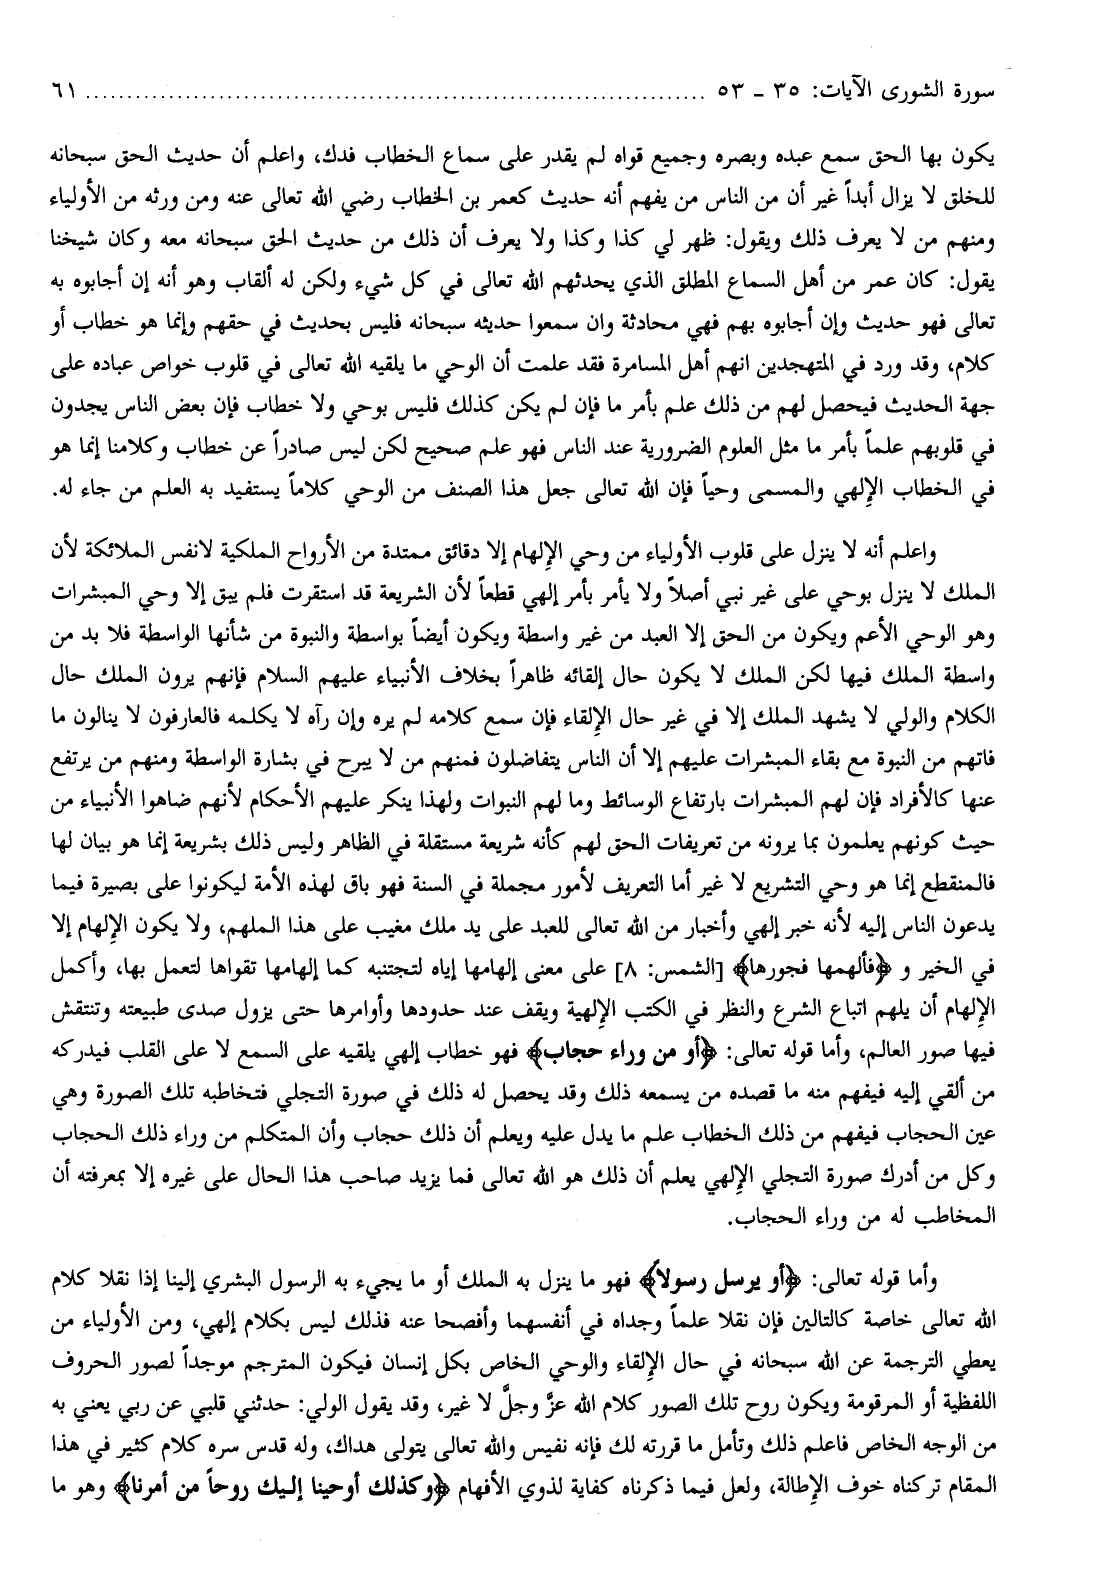 سورة الشورى الآيات: ٣٥ ـ ٥٣ ........................................................................ ٦١
يكون بها الحق سمع عبده وبصره وجميع قواه لم يقدر على سماع الخطاب فدك، واعلم أن حديث الحق سبحانه
للخلق لا يزال أبداً غير أن من الناس من يفهم أنه حديث كعمر بن الخطاب رضي الله تعالى عنه ومن ورثه من الأولياء
ومنهم من لا يعرف ذلك ويقول: ظهر لي كذا وكذا ولا يعرف أن ذلك من حديث الحق سبحانه معه وكان شيخنا
يقول: كان عمر من أهل السماع المطلق الذي يحدثهم الله تعالى في كل شيء ولكن له ألقاب وهو أنه إن أجابوه به
تعالى فهو حديث وإن أجابوه بهم فهي محادثة وان سمعوا حديثه سبحانه فليس بحديث في حقهم وإنما هو خطاب أو
كلام، وقد ورد في المتهجدين انهم أهل المسامرة فقد علمت أن الوحي ما يلقيه الله تعالى في قلوب خواص عباده على
جهة الحديث فيحصل لهم من ذلك علم بأمر ما فإن لم يكن كذلك فليس بوحي ولا خطاب فإن بعض الناس يجدون
في قلوبهم علماً بأمر ما مثل العلوم الضرورية عند الناس فهو علم صحيح لكن ليس صادراً عن خطاب وكلامنا إنما هو
في الخطاب الإلهي والمسمى وحياً فإن الله تعالى جعل هذا الصنف من الوحي كلاماً يستفيد به العلم من جاء له.
واعلم أنه لا ينزل على قلوب الأولياء من وحي الإلهام إلا دقائق ممتدة من الأرواح الملكية لانفس الملائكة لأن
الملك لا ينزل بوحي على غير نبي أصلاً ولا يأمر بأمر إلهي قطعاً لأن الشريعة قد استقرت فلم يبق إلا وحي المبشرات
وهو الوحي الأعم ويكون من الحق إلا العبد من غير واسطة ويكون أيضاً بواسطة والنبوة من شأنها الواسطة فلا بد من
واسطة الملك فيها لكن الملك لا يكون حال إلقائه ظاهراً بخلاف الأنبياء عليهم السلام فإنهم يرون الملك حال
الكلام والولي لا يشهد الملك إلا في غير حال الإلقاء فإن سمع كلامه لم يره وإن رآه لا يكلمه فالعارفون لا ينالون ما
فاتهم من النبوة مع بقاء المبشرات عليهم إلا أن الناس يتفاضلون فمنهم من لا يبرح في بشارة الواسطة ومنهم من يرتفع
عنها كالأفراد فإن لهم المبشرات بارتفاع الوسائط وما لهم النبوات ولهذا ينكر عليهم الأحكام لأنهم ضاهوا الأنبياء من
حيث كونهم يعلمون بما يرونه من تعريفات الحق لهم كأنه شريعة مستقلة في الظاهر وليس ذلك بشريعة إنما هو بيان لها
فالمنقطع إنما هو وحي التشريع لا غير أما التعريف لأمور مجملة في السنة فهو باق لهذه الأمة ليكونوا على بصيرة فيما
يدعون الناس إليه لأنه خبر إلهي وأخبار من الله تعالى للعبد على يد ملك مغيب على هذا الملهم، ولا يكون الإلهام إلا
في الخير و ﴿فألهمها فجورها﴾ [الشمس: ٨] على معنى إلهامها إياه لتجتنبه كما إلهامها تقواها لتعمل بها، وأكمل
الإلهام أن يلهم اتباع الشرع والنظر في الكتب الإلهية ويقف عند حدودها وأوامرها حتى يزول صدى طبيعته وتنتقش
فيها صور العالم، وأما قوله تعالى: ﴿أو من وراء حجاب﴾ فهو خطاب إلهي يلقيه على السمع لا على القلب فيدركه
من ألقي إليه فيفهم منه ما قصده من يسمعه ذلك وقد يحصل له ذلك في صورة التجلي فتخاطبه تلك الصورة وهي
عين الحجاب فيفهم من ذلك الخطاب علم ما يدل عليه ويعلم أن ذلك حجاب وأن المتكلم من وراء ذلك الحجاب
وكل من أدرك صورة التجلي الإلهي يعلم أن ذلك هو الله تعالى فما يزيد صاحب هذا الحال على غيره إلا بمعرفته أن
المخاطب له من وراء الحجاب.
وأما قوله تعالى: ﴿أو يرسل رسولاً﴾ فهو ما ينزل به الملك أو ما يجيء به الرسول البشري إلينا إذا نقلا كلام
الله تعالى خاصة كالتالين فإن نقلا علماً وجداه في أنفسهما وأفصحا عنه فذلك ليس بكلام إلهي، ومن الأولياء من
يعطي الترجمة عن الله سبحانه في حال الإلقاء والوحي الخاص بكل إنسان فيكون المترجم موجداً لصور الحروف
اللفظية أو المرقومة ويكون روح تلك الصور كلام الله عزَّ وجلَّ لا غير، وقد يقول الولي: حدثني قلبي عن ربي يعني به
من الوجه الخاص فاعلم ذلك وتأمل ما قررته لك فإنه نفيس والله تعالى يتولى هداك، وله قدس سره كلام كثير في هذا
المقام تركناه خوف الإطالة، ولعل فيما ذكرناه كفاية لذوي الأفهام ﴿وكذلك أوحينا إليك روحاً من أمرنا﴾ وهو ما